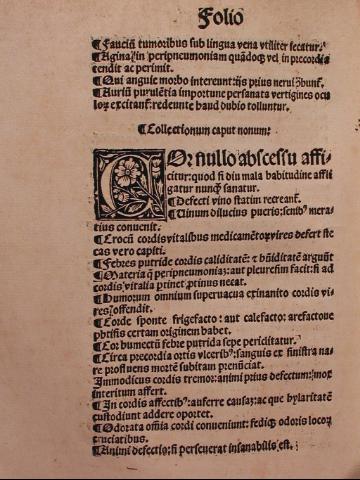 Folio
¶Fauciū tumoribus sub lingua vena vtiliter secatur.
¶Agina in peripneumoniam quādoq; vel in precordia
tendit ac perimit.
¶Qui anguie morbo intereunt: ijs prius nerui
¶Auriū purulētia importune persanata vertigines ocu
lorū excitant: redeunte haud dubio tolluntur.
¶Collectionum caput nonum:
COr nullo abscessu affi-
citur: quod si diu mala habitudine affli
gatur nunq̄ sanatur.
¶Defecti vino statim recreant̄.
¶Uinum dilucius pueris: senibꝰ mera-
tius conuenit.
¶Crocū cordis vitalibus medicamētorū vires defert sic
cas vero capiti.
¶Febres putride cordis caliditatē: ⁊ hūiditatē arguūt
¶Materia q̄ peripneumoniaz: aut pleuresim facit: si ad
cordis vitalia ptinet ptinus necat.
¶Humorum omnium superuacua exinanito cordis vi-
res offendit.
¶Corde sponte frigefacto: aut calefacto: arefactoue
phtisis certam originem habet.
¶Cor humectū febre putrida sepe periclitatur.
¶Circa precordia ortis vlceribꝰ: sanguis ex sinistra na-
re profluens mortē subitam prenūciat.
Immodicus cordis tremor: animi prius defectum: mox
interitum affert.
¶In cordis affectibꝰ: auferre causaz: ac que hylaritatē
custodiunt addere oportet.
¶Odorata oīa cordi conueniunt: fediq; odoris locorū
cruciatibus.
¶Animi defectio: si perseuerat insanabilis est.